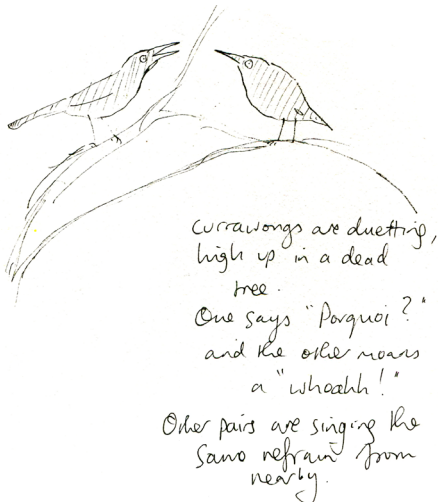 Currawongs are duetting,
high up in a dead
tree.
One says "Porquoi?"
and the other moans
a "whoahh!"
Other pairs are singing the
same refrain from
nearby.